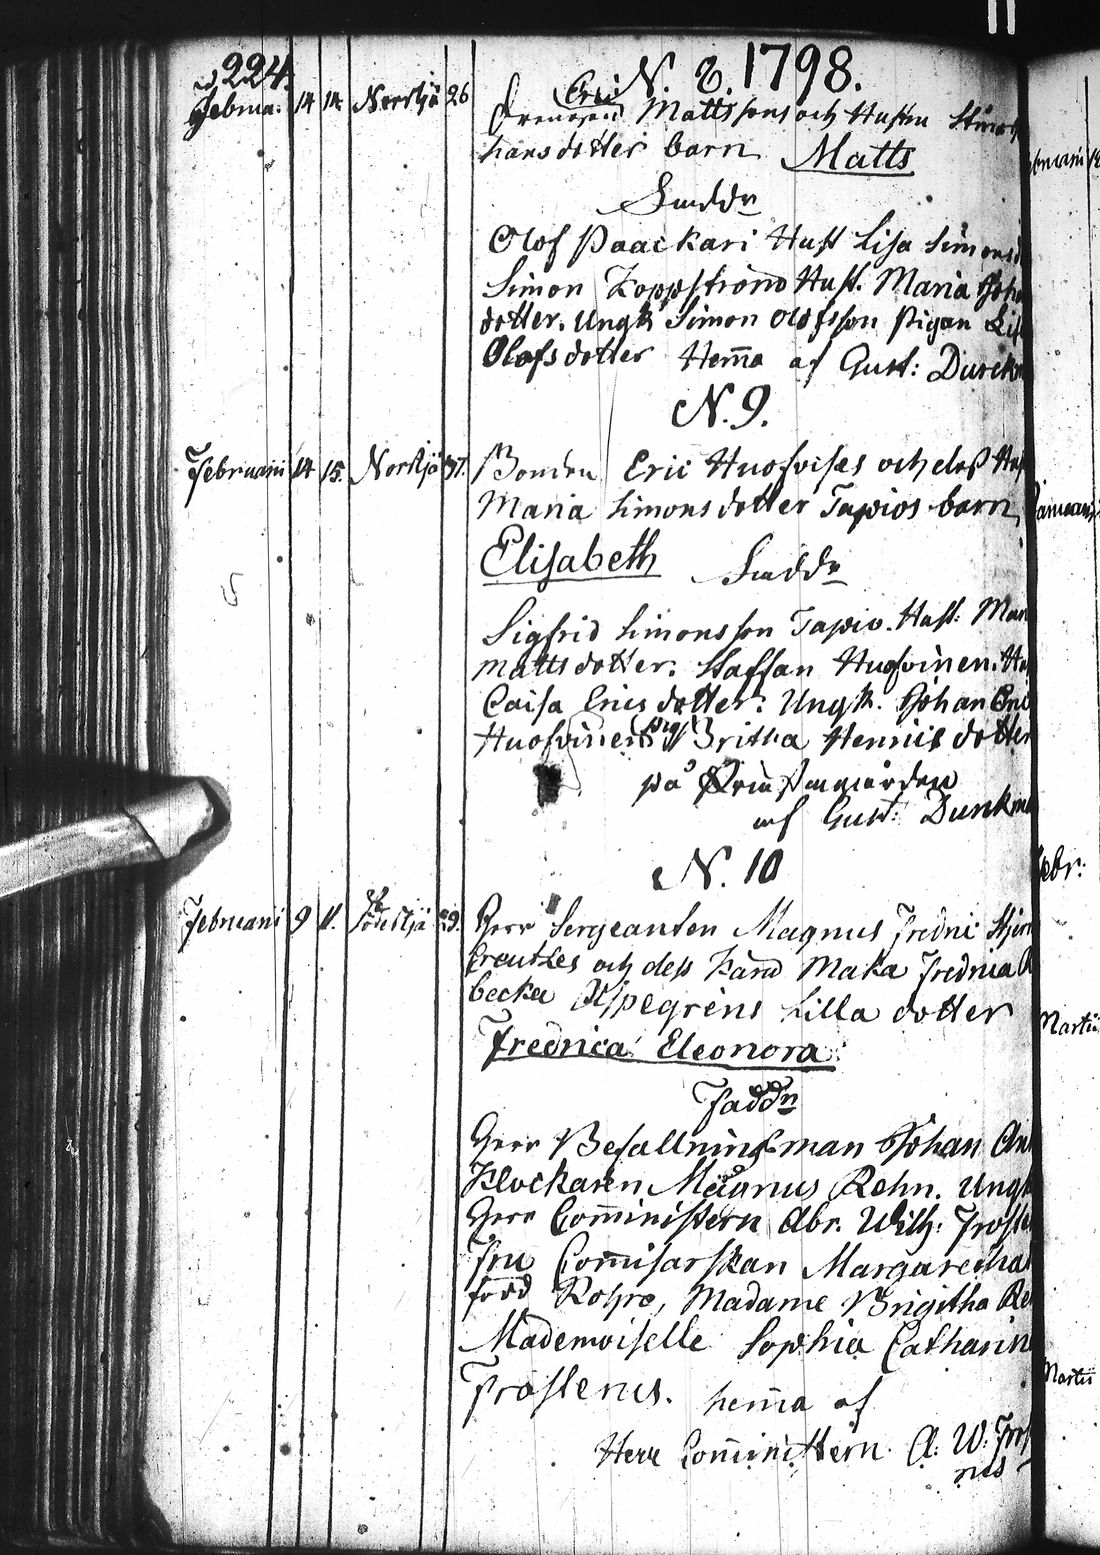 224. N. 8. 1798.
Februa. 14 14 Norrsjö 26 Drengen Eric Mattssons och Hustru
hansdotter barn Matts
Faddr
Olof Paackari Hust Lisa Simons
Simon Koppström Hust. Maria Joha
dotter. Ungk Simon Olofsson Pigan Lis
Olofsdotter Hem̄a af Gust: Dunckm
N. 9.
Februarii 14 15. Norrsjö 37. Bonden Eric Huofvises och dess Hu
Maria Simonsdotter Tapios barn
Elisabeth Faddr
Sigfrid Simonsson Tapio. Hust. Mar
Mattsdotter. Staffan Huofvinen. Hu
Caisa Ericsdotter. Ungk. Johan Eric
Huofvinen Pig Britha Henricsdotter
på
af Gust: Dunkm
N. 10
Februarii 9 11. 29. Herr Sergeanten Magnus Fredric Stjern
creutzes och dess Kära Maka Fredrica R
becka Aspegréns Lilla dotter
Fredrica Eleonora.
Faddr
Herr Befallningsman Johan
Klockaren Magnus Rehn. Ungk
Herr Com̄inistern Abr. Wilh: Froste
Fru Com̄isarskan Margaretha
född Rohro, Madame Brigitha Re
Mademoiselle Sophia Catharin
Frosterus. hem̄a af
Herr Com̄inistern A. W. Fros
rus
bruarii
Januarii
Febr:
Martii
Martii